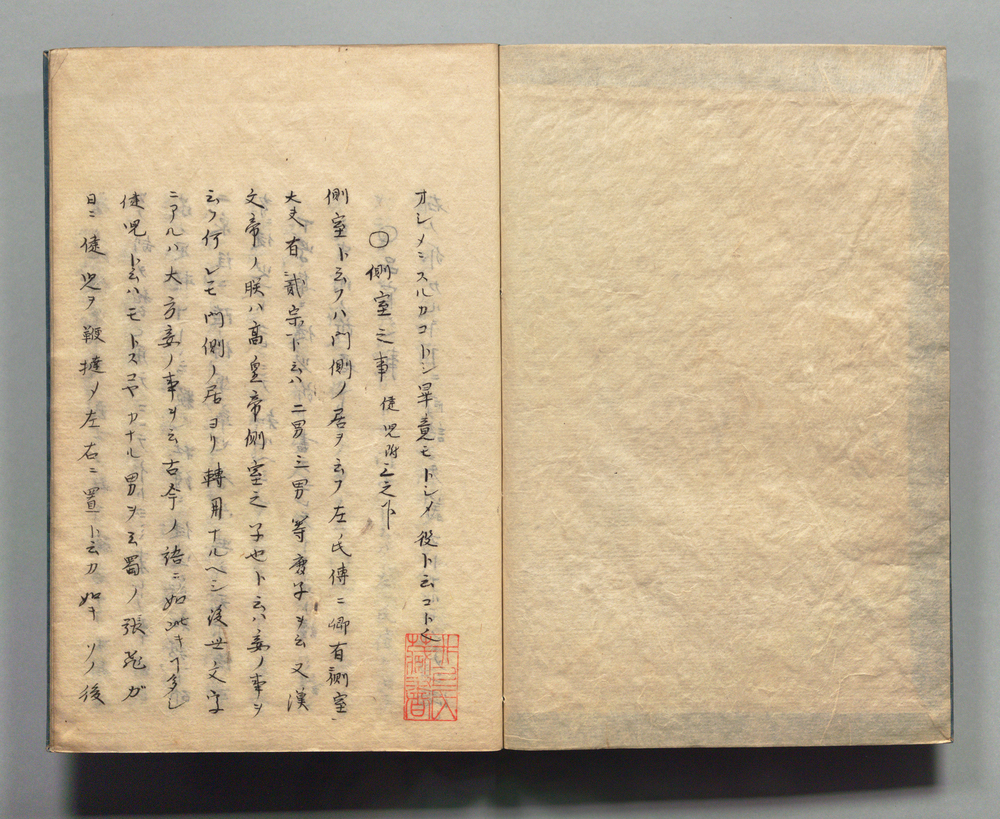 オシメニスルカコトシ畢竟モトシメ役ト云コト也
○側室之事 徒児附 云之下
側室ト云フハ門側ノ居ヲ云フ左ノ氏傳ニ卿有側室
大夫有貳宗ト云ハ二男三男等庻子ヲ云又漢
文帝ノ朕ハ高皇帝側室之子也ト云ハ妾ノ事ヲ
云フ何レモ門側ノ居ヨリ轉用ナルヘシ後世文字
ニアルハ大方妾ノ事ヲ云古今ノ語ニ如此キヿ多し
徒児ト云ハモトスコヤカナル男ヲ云蜀ノ張飛ガ
日ニ徒児ヲ鞭撻メ左右ニ置ト云カ如キ ソノ後